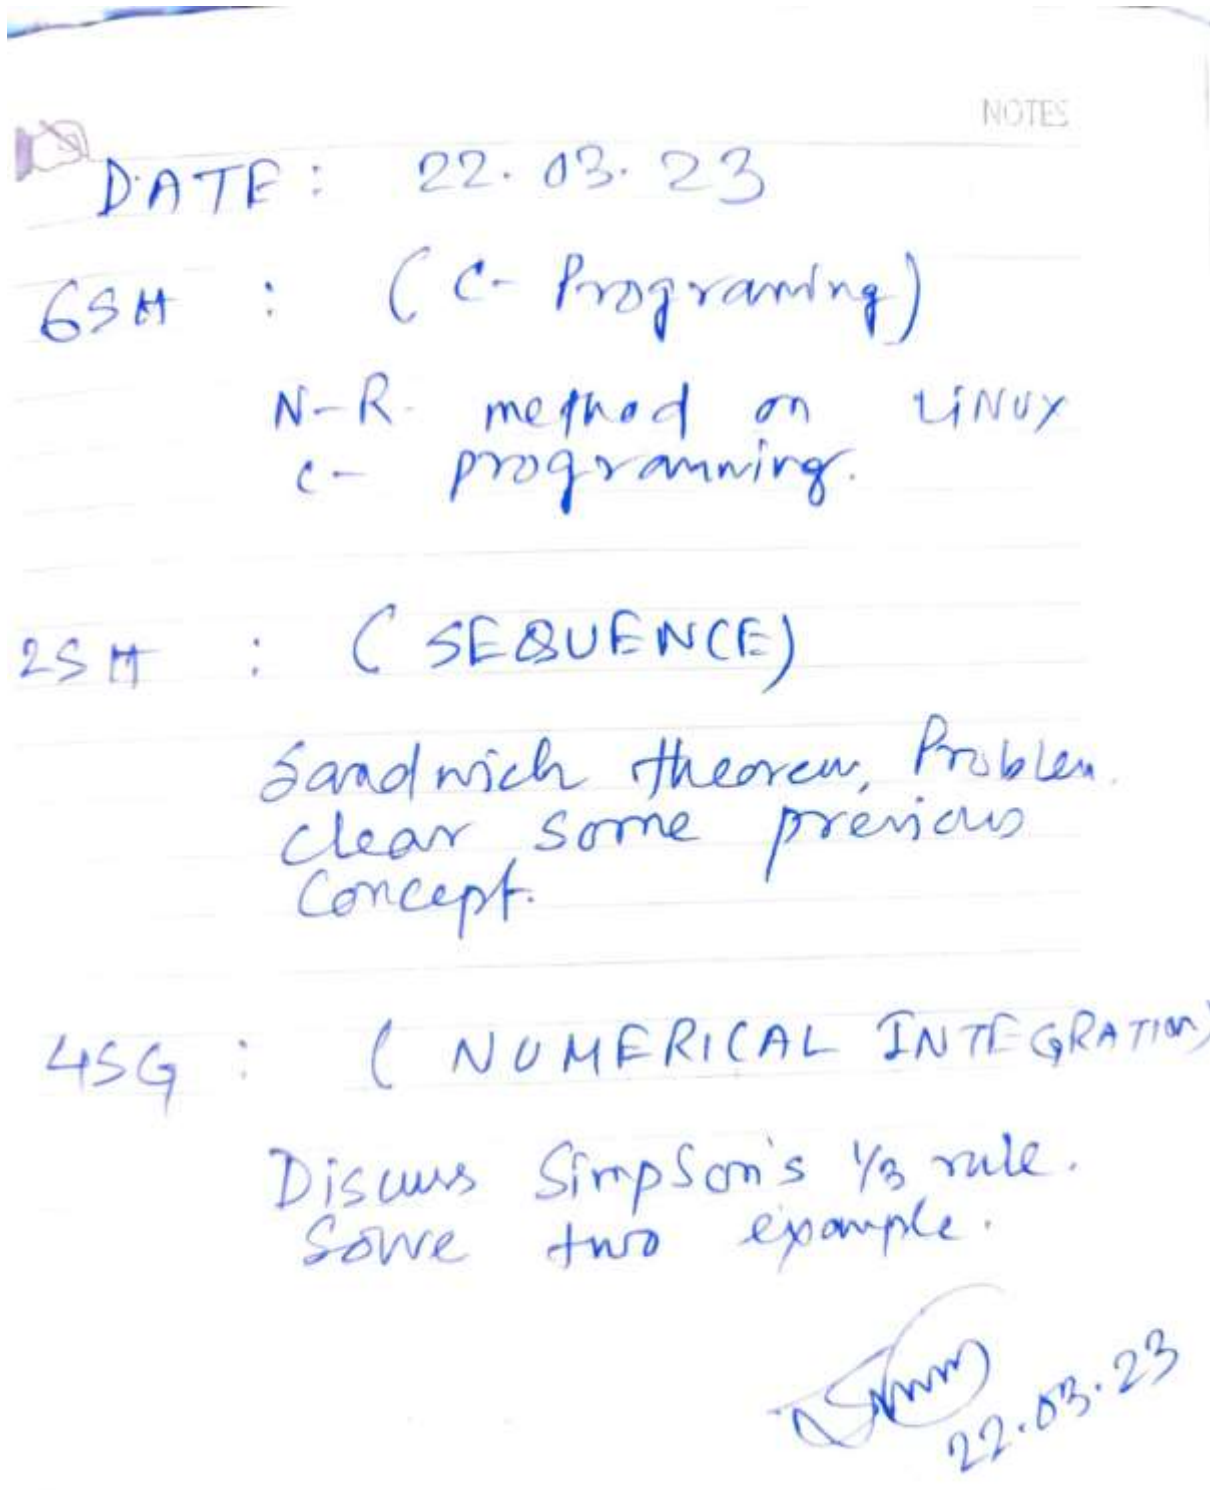 NOTES
DATE : 22.03.23
6SH : ( C- Programing)
N-R. method on LiNUX
C- programming.
2SH : ( SEQUENCE)
Sandwich theorem, Problem.
Clear some previous
Concept.
4SG : ( NUMERICAL INTEGRATION)
Discuss Simpson's 1/3 rule.
Solve two example.
22.03.23